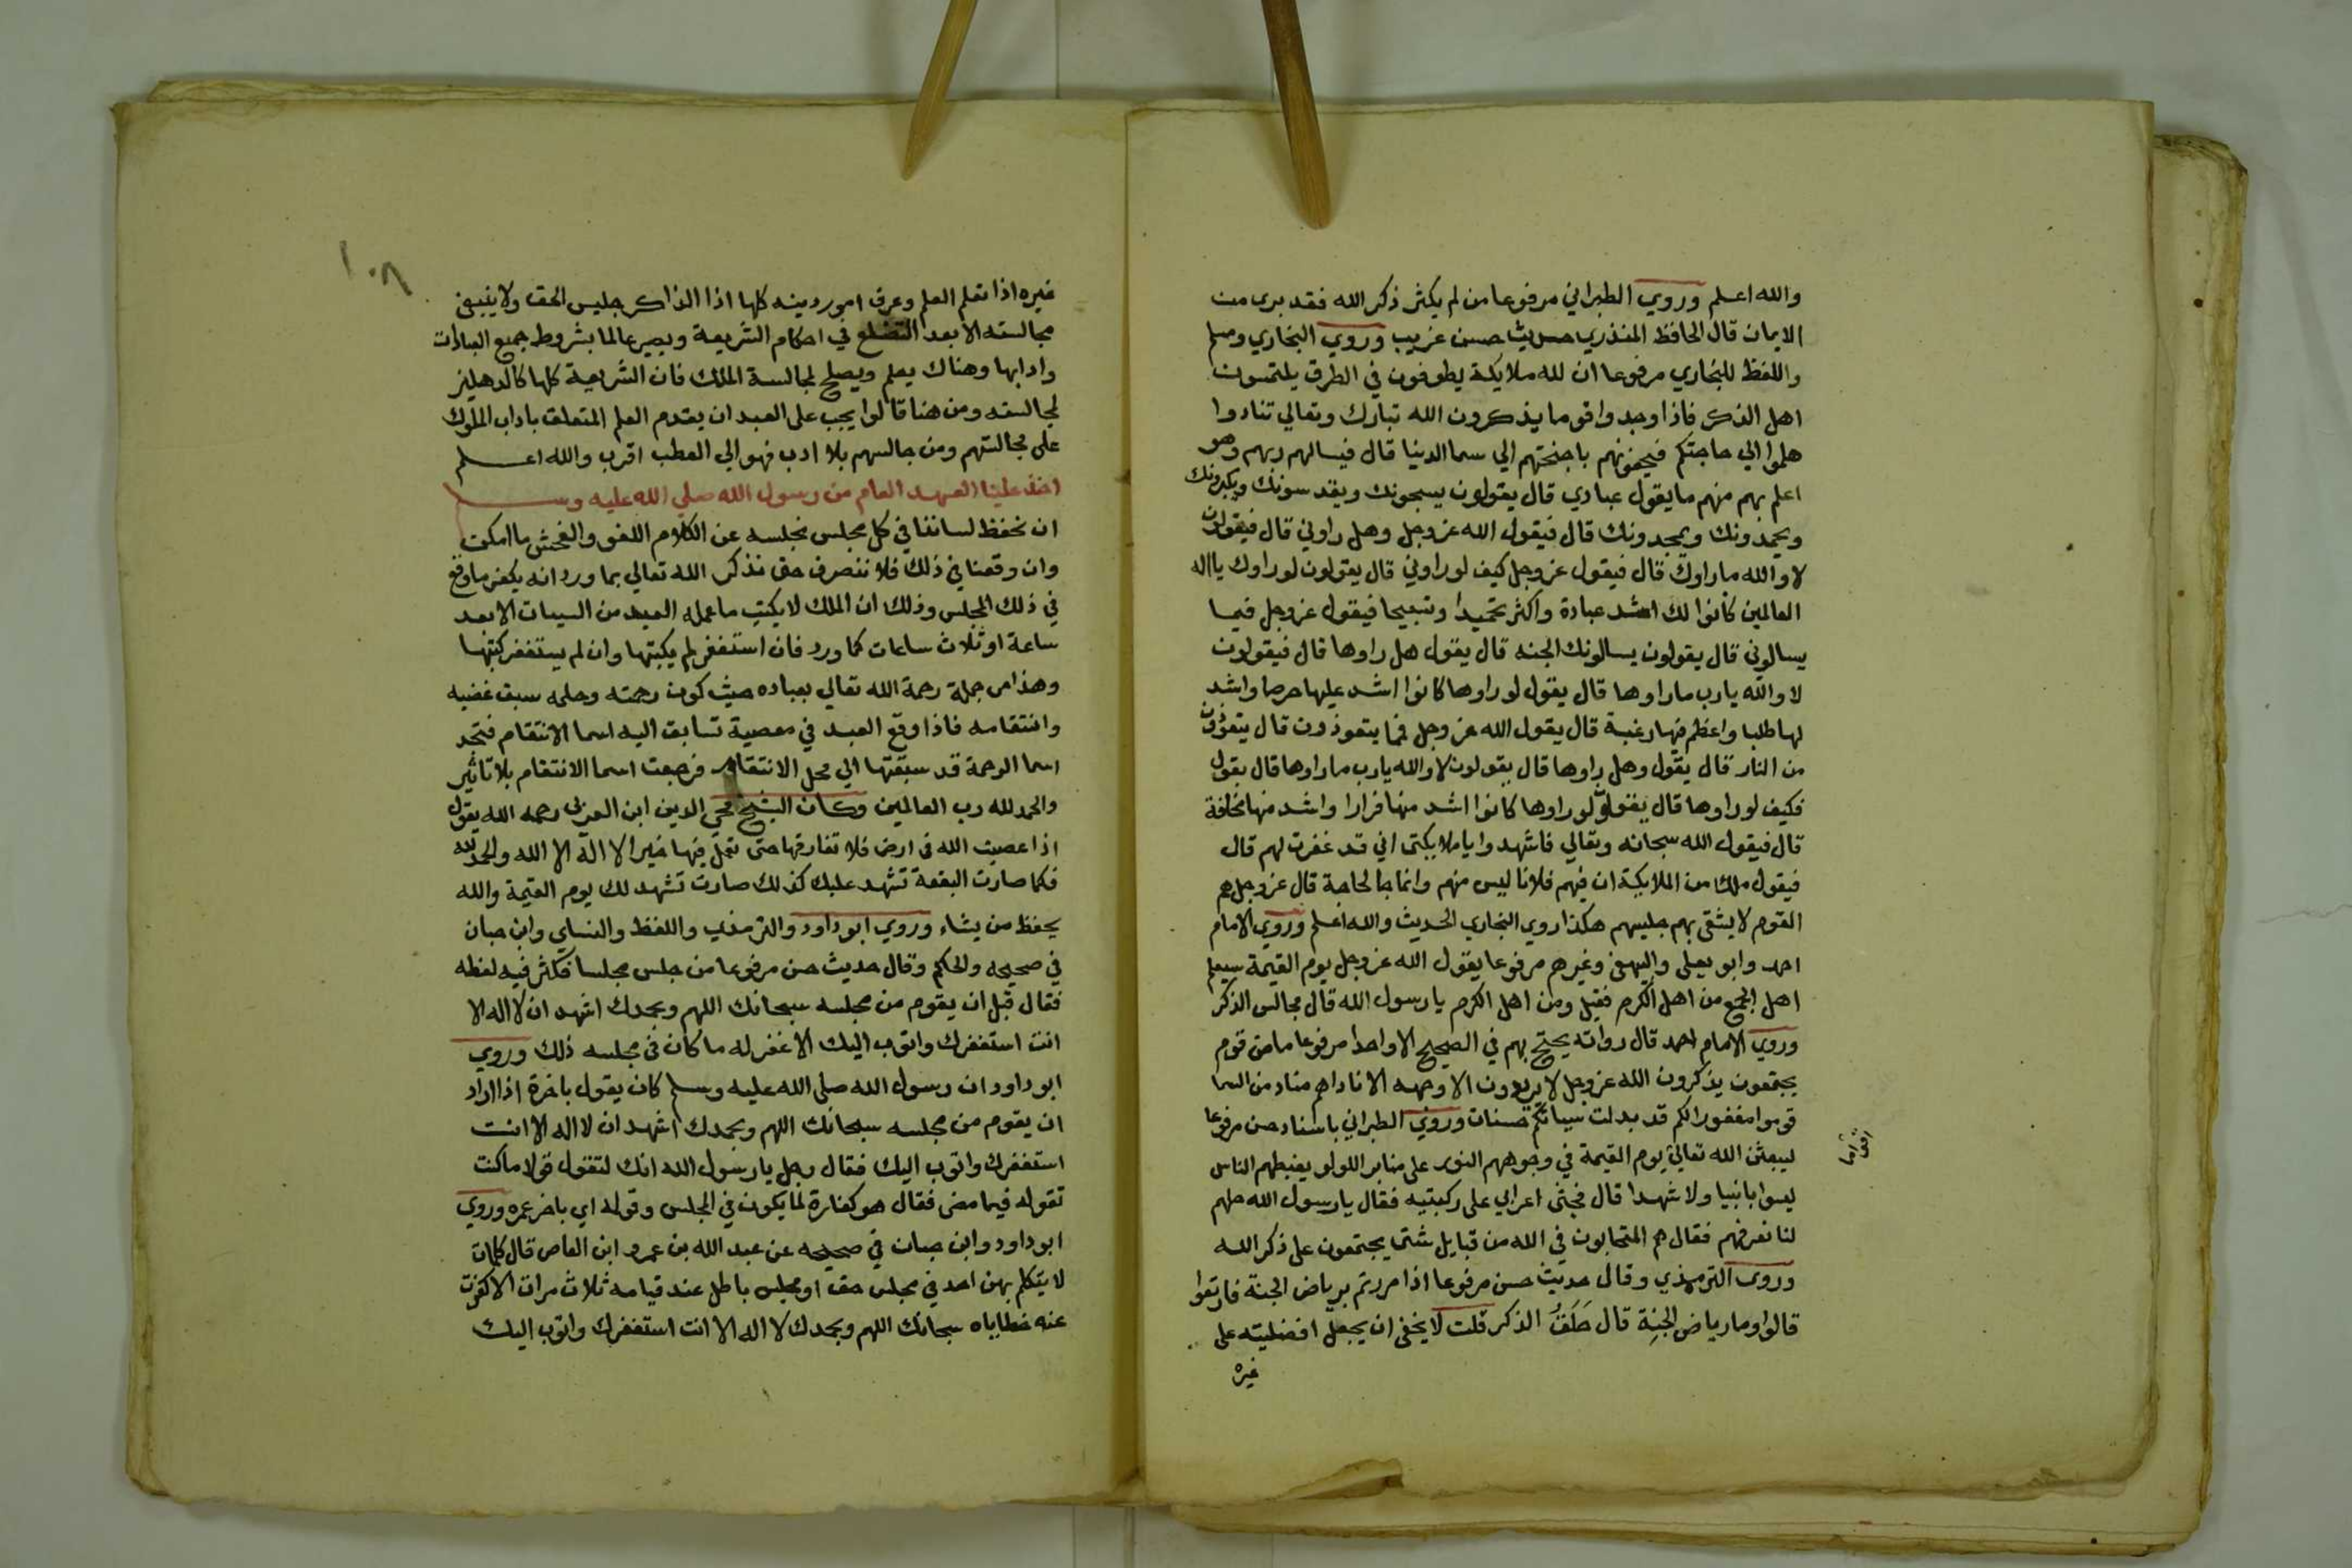 والله اعلم وروي الطبراني مرفوعا من لم يكثر ذكر الله فقد بري من
الايمان قال الحافظ المنذري حديث حسن غريب وروي البخاري ومسلم
واللفظ للبخاري مرفوعا ان لله ملايكة يطوفون في الطرق يلتمسون
اهل الذكر فاذا وجدوا قوما يذكرون الله تبارك وتعالي تنادوا
هلموا الي حاجتكم فيحفونهم باجنحتهم الي سما الدنيا قال فيسالهم ربهم وهو
اعلم بهم منهم ما يقول عبادي قال يقولون يسبحونك ويقدسونك ويكبرونك
ويحمدونك ويمجدونك قال فيقول الله عز وجل وهل راوني قال فيقولون
لا والله ما راوك قال فيقول عز وجل كيف لو راوني قال يقولون لو راوك يا اله
العالمين كانوا لك اشد عبادة واكثر تحميدا وتسبيحا فيقول عز وجل فيما
يسالوني قال يقولون يسالونك الجنه قال يقول هل راوها قال فيقولون
لا والله يارب ما راوها قال يقول لو راوها كانوا اشد عليها حرصا واشد
لها طلبا واعظم فيها رغبة قال يقول الله عز وجل فما يتعوذون قال يتعوذون
من النار قال يقول وهل راوها قال يقولون لا والله يارب ما راوها قال يقول
فكيف لو راوها قال يقولوا لو راوها كانوا اشد منها فرارا واشد منها مخافة
قال فيقول الله سبحانه وتعالي فاشهدوا يا ملايكتي اني قد غفرت لهم قال
فيقول ملك من الملايكة ان فيهم فلانا ليس منهم وانما جا لحاجة قال عز وجل هم
القوم لا يشقي بهم جليسهم هكذا روي البخاري الحديث والله اعلم وروي الامام
احمد وابو يعلي والبيهقي وغيرهم مرفوعا يقول الله عز وجل يوم القيمة سيعلم
اهل الجمع من اهل الكرم فقيل ومن اهل الكرم يا رسول الله قال مجالس الذكر
وروي الامام احمد قال رواته يحتج بهم في الصحيح الا واحدا مرفوعا ما من قوم
يجتمعون يذكرون الله عز وجل لا يريدون الا وجهه الا ناداهم مناد من السما
قوموا مغفورا لكم قد بدلت سيياتكم حسنات وروي الطبراني باسناد حسن مرفوعا
ليبعثن الله تعالي يوم القيمة في وجوههم النور علي منابر اللولو يغبطهم الناس
ليسوا بانبيا ولا شهدا قال فجثي اعرابي علي ركبتيه فقال يا رسول الله حلهم
لنا نعرفهم فقال هم المتحابون في الله من قبايل شتي يجتمعون علي ذكر الله
وروي الترمذي وقال حديث حسن مرفوعا اذا مررتم برياض الجنة فارتعوا
قالوا وما رياض الجنة قال حَلَقُ الذكر قلت لا يخفي ان يجعل افضليته علي
غيره
غيره اذا تعلم العلم وعرف امور دينه كلها اذا الذاكر جليس الحق ولا ينبغي
مجالسته الا بعد التضلع في احكام الشريعة ويصير عالما بشروط جميع العبادات
وادابها وهناك يعلم ويصلح لمجالسة الملك فان الشريعة كلها كالدهليز
لمجالسته ومن هنا قالوا يجب علي العبد ان يقدم العلم المتعلق باداب الملوك
علي مجالستهم ومن جالسهم بلا ادب فهو الي العطب اقرب والله اعلم
اخذ علينا العهد العام من رسول الله صلي الله عليه وسلم
ان نحفظ لساننا في كل مجلس نجلسه عن الكلام اللغو والفحش ما امكن
وان وقعنا في ذلك فلا ننصرف حتي نذكر الله تعالي بما ورد انه يكفر ما وقع
في ذلك المجلس وذلك ان الملك لا يكتب ما عمله العبد من السيات الا بعد
ساعة او ثلاث ساعات كما ورد فان استغفر لم يكتبها وان لم يستغفر كتبها
وهذا من جملة رحمة الله تعالي بعباده حيث كون رحمته وحلمه سبق غضبه
وانتقامه فاذا وقع العبد في معصية تسابق اليه اسما الانتقام فتجد
اسما الرحمة قد سبقتها الي محل الانتقام فرجعت اسما الانتقام بلا تاثير
والحمد لله رب العالمين وكان الشيخ محي الدين ابن العربي رحمه الله يقول
اذا عصيت الله في ارض فلا تفارقها حتي تعمل فيها خيرا لا اله الا الله والحمد لله
فكما صارت البقعة تشهد عليك كذلك صارت تشهد لك يوم القيمة والله
يحفظ من يشاء وروي ابو داود والترمذي واللفظ والنساي وابن حبان
في صحيحه والحاكم وقال حديث حسن مرفوعا من جلس مجلسا فكثر فيه لغطه
فقال قبل ان يقوم من مجلسه سبحانك اللهم وبحمدك اشهد ان لا اله الا
انت استغفرك واتوب اليك الا غفر له ما كان في مجلسه ذلك وروي
ابو داود ان رسول الله صلي الله عليه وسلم كان يقول باخرة اذا اراد
ان يقوم من مجلسه سبحانك اللهم وبحمدك اشهد ان لا اله الا انت
استغفرك واتوب اليك فقال رجل يا رسول الله انك لتقول قولا ما كنت
تقوله فيما مضي فقال هو كفارة لما يكون في المجلس وقوله اي باخر عمره وروي
ابو داود وابن حبان في صحيحه عن عبد الله بن عمرو ابن العاص قال كلمات
لا يتكلم بهن احد في مجلس حق او مجلس باطل عند قيامه ثلاث مرات الا كفرت
عنه خطاياه سبحانك اللهم وبحمدك لا اله الا انت استغفرك واتوب اليك